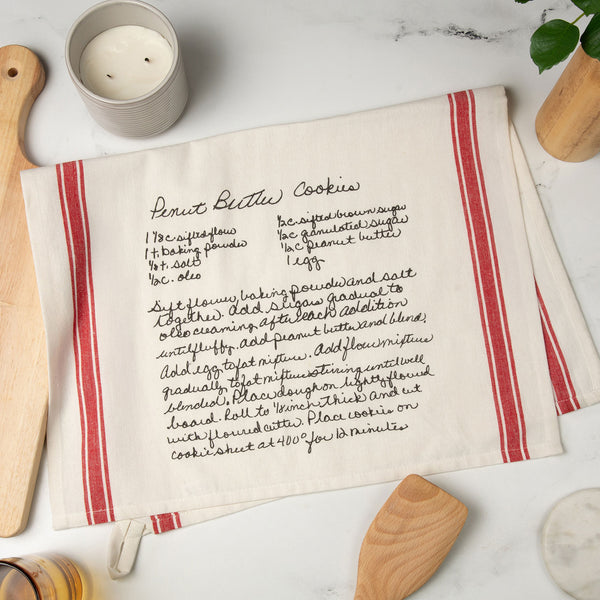 Penut Butter Cookies
1 1/8 c sifted flour
1 t. baking powder
1/8 t. salt
1/2 c. oleo
1/2 c. sifted brown sugar
1/2 c granulated sugar
1/2 c peanut butter
1 egg
Sift flower, baking powder and salt
together. Add sugars gradual to
oleo creaming after each addition
until fluffy. add peanut butter and blend.
Add egg to fat mixture. Add flour mixture
gradually to fat mixture stirring until well
blended. Place dough on lightly floured
board. Roll to 1/8 inch thick and cut
with floured cutter. Place cookies on
cookie sheet at 400° for 12 minutes